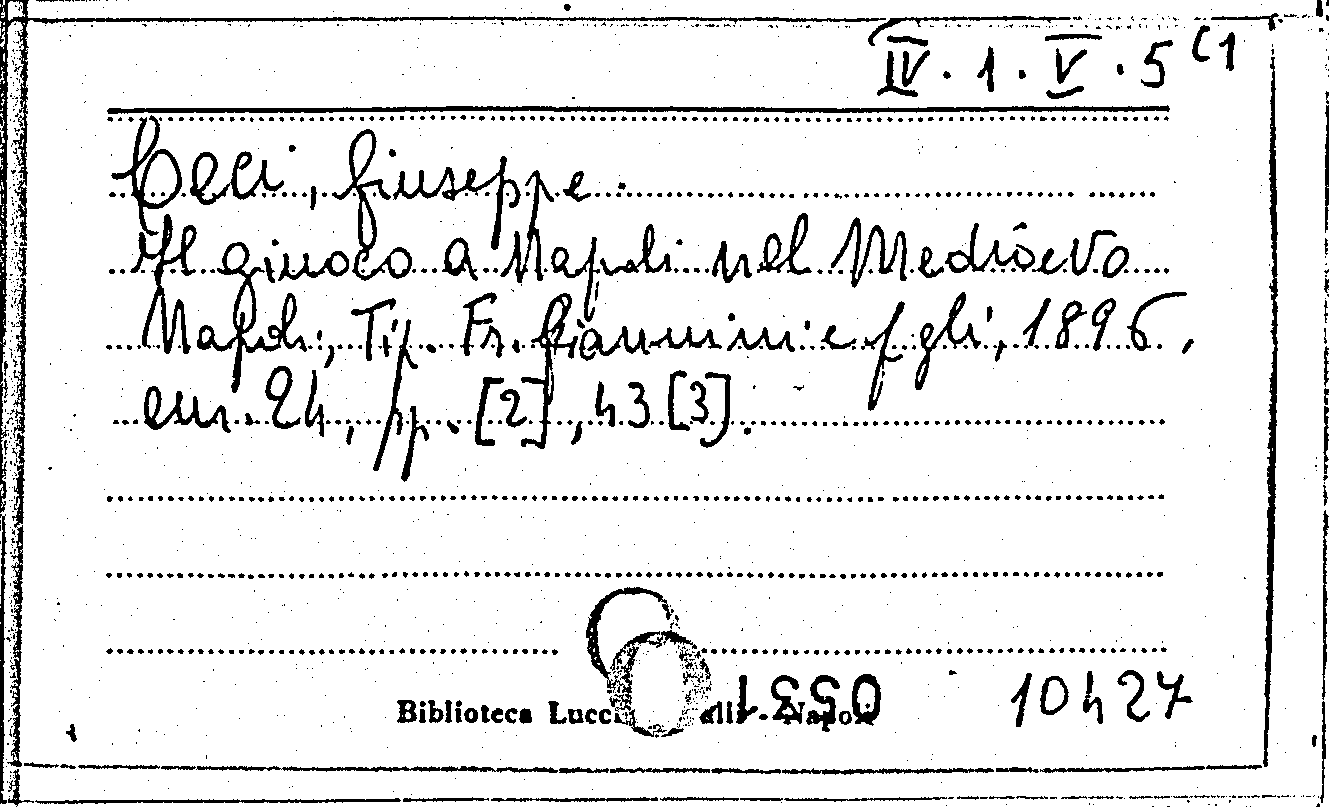 IV. 1. V. 5 (1
Ceci, Giuseppe.
Il giuoco a Napoli nel Medioevo
Napoli, Tip. Fr. Giannini e figli, 1896,
cm. 24, pp. [2], 43 [3].
Biblioteca - Napoli
0531
10427